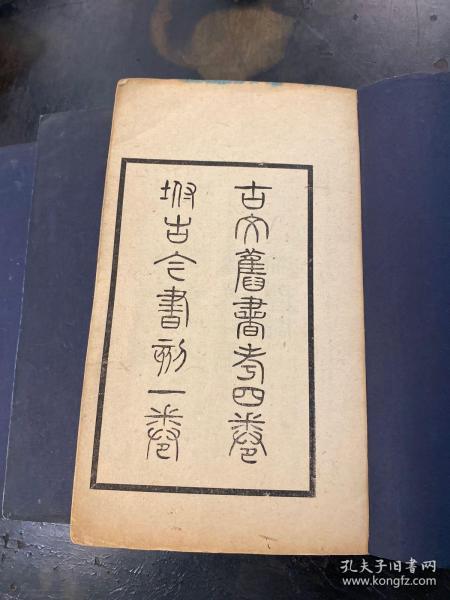 古文舊書考四卷
坿古今書刻一卷
孔夫子旧书网
www.kongfz.com